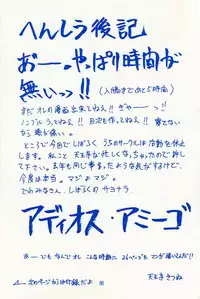 へんしう後記
あ゛ー。やっぱり時間が
無いっ!!(入稿まであと5時間)
まだオレの漫画出来てねェ!! ぎゃーっ!!
ノンブルうってねえ!! 目次も作ってねぇ!! 寝てない
から頭が痛い。
ところで今回でしばらくうちのサークルは活動を休止
します。私こと 天王寺が忙しくなっちゃったので許し
て下さい。去年も同じ事を、たような気がするけど、
今度は本当。マジよマジ。
でわみなさん、しばらくの サヨナラ
アディオス・アミーゴ
あーでもなんでオレ こんな時期に 26ページもマンガ描いてんだ!!
天王寺きつね
次のページからは付録だよ